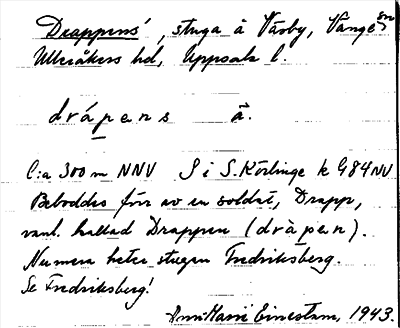 Drappens', stuga å Väsby, Vänge sn
Ulleråkers hd, Uppsala l.
drápens ã.
C:a 300 m NNV S i S. Körlinge k G84NV
Beboddes förr av en soldat, Drapp,
vanl. kallad Drappen (dràpen).
Numera heter stugan Fredriksberg.
Se Fredriksberg!
AnnMarie Einestam, 1943.